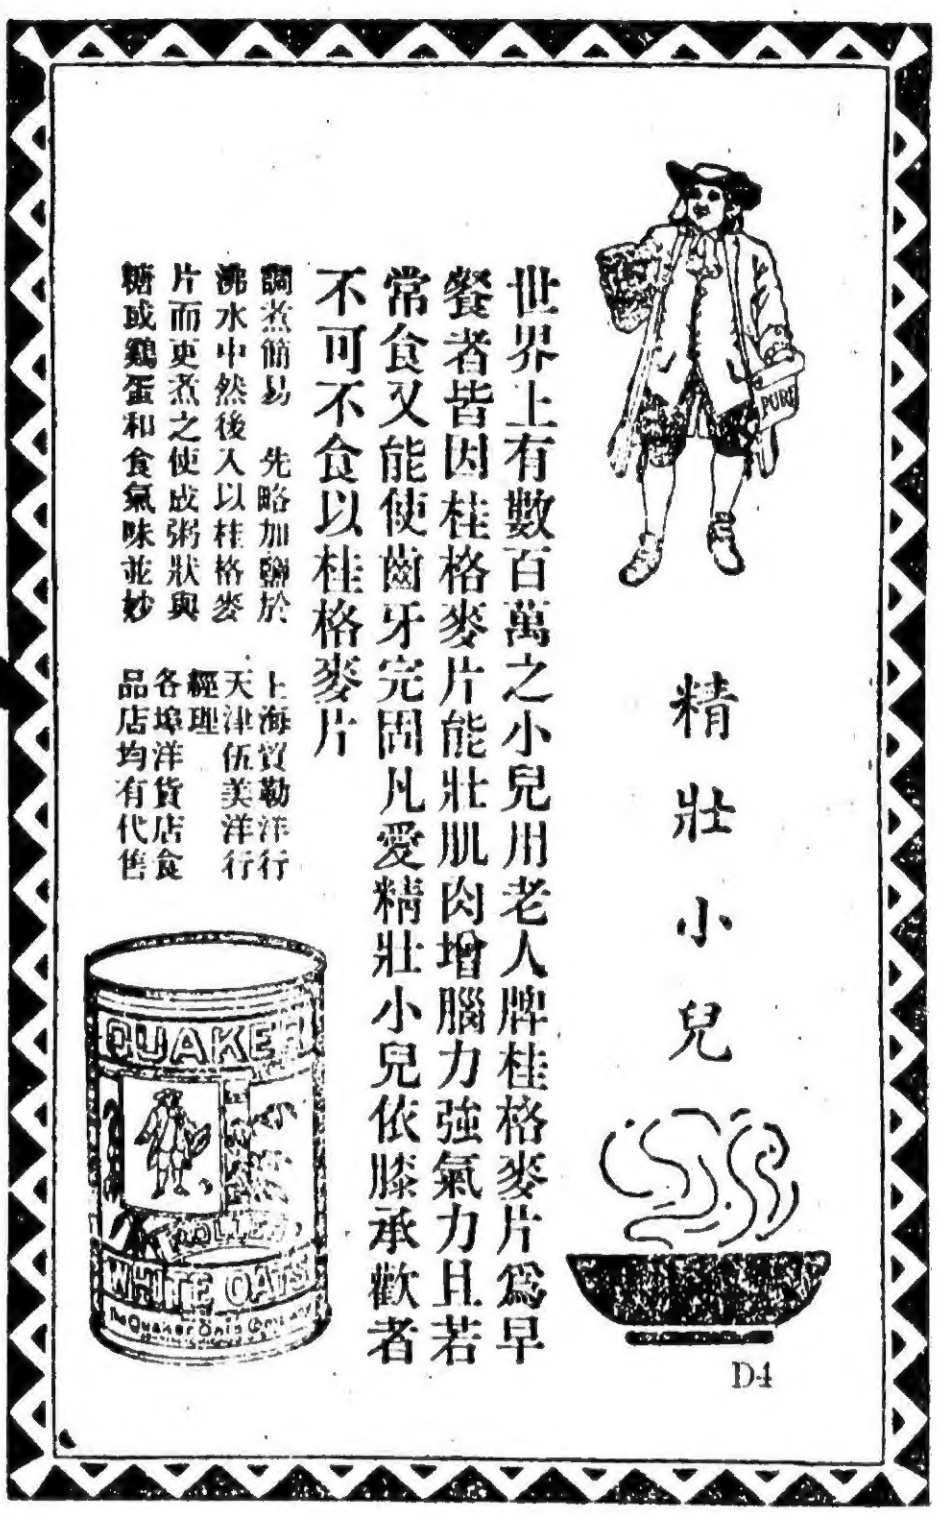 精壯小兒
世界上有數百萬之小兒用老人牌桂格麥片爲早
餐者皆因桂格麥片能壯肌肉增腦力強氣力且若
常食又能使齒牙完固凡愛精壯小兒依膝承歡者
不可不食以桂格麥片
調煮簡易 先略加鹽於
沸水中然後入以桂格麥
片而更煮之使成粥狀與
糖或鷄蛋和食氣味並妙
上海貿勒洋行
天津伍美洋行
經理
各埠洋貨店食
品店均有代售
PURE
QUAKER
ROLLED
WHITE OATS
The Quaker Oats Company
D4